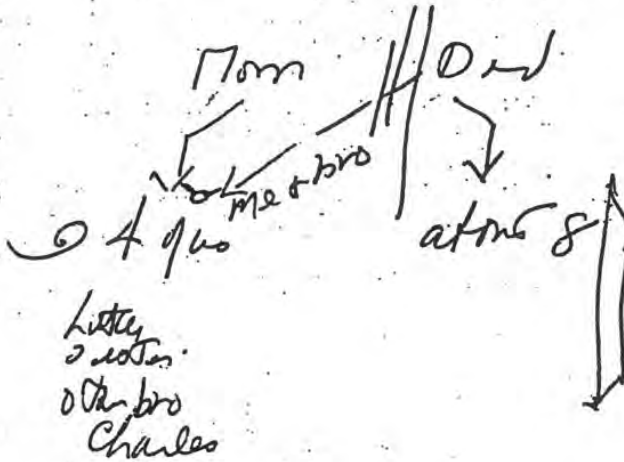 Mom Dad
me & bro
4 of us
at one 8
Little
sister
other bro
Charles